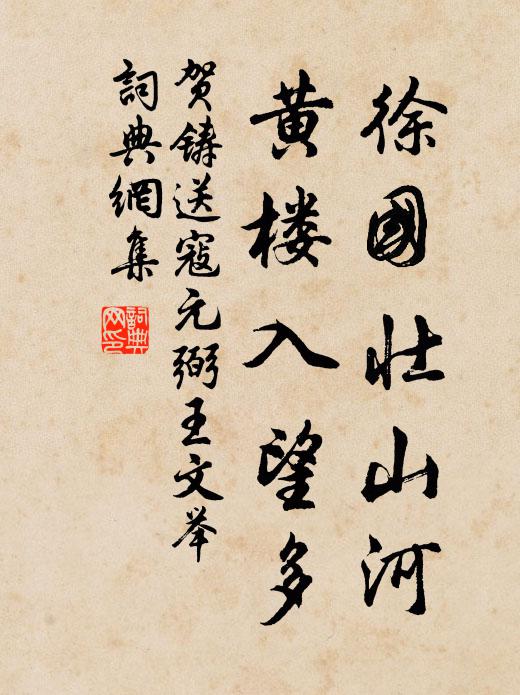 徐國壯山河
黄楼入望多
贺鑄送寇元弼王文举
詞典網集
詞典网印